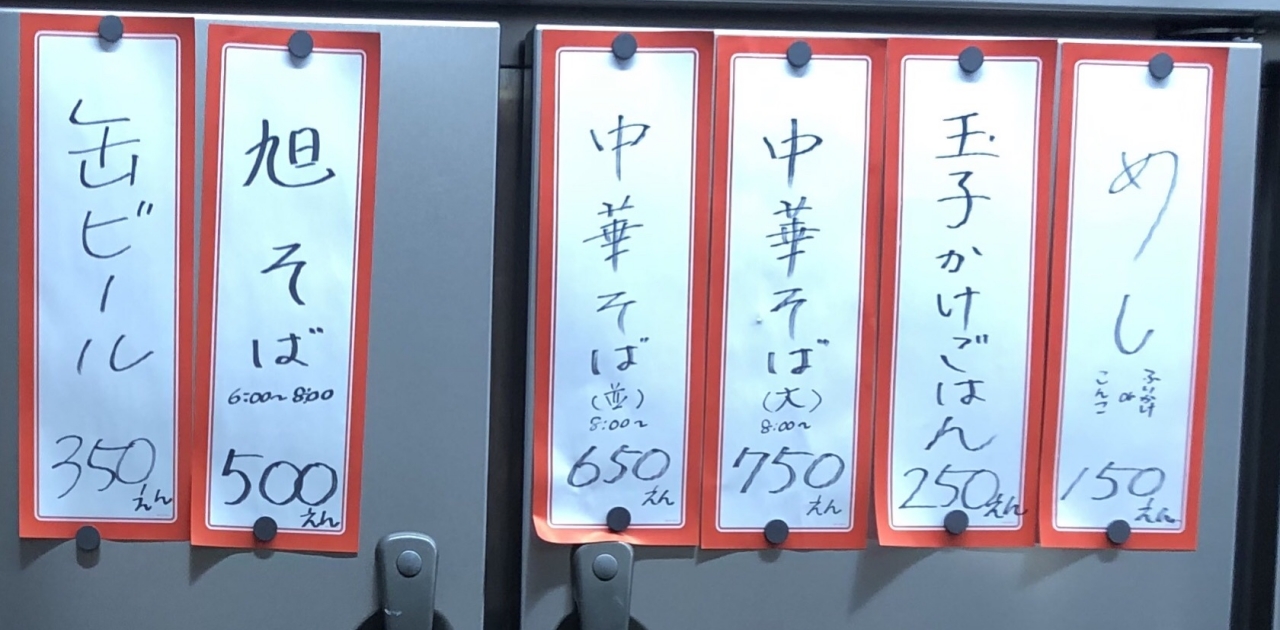 めし
ふりかけ
or
こんこ
150えん
玉子かけごはん
250えん
中華そば
(大)
8:00~
750えん
中華そば
(並)
8:00~
650えん
旭そば
6:00~8:00
500えん
缶ビール
350えん